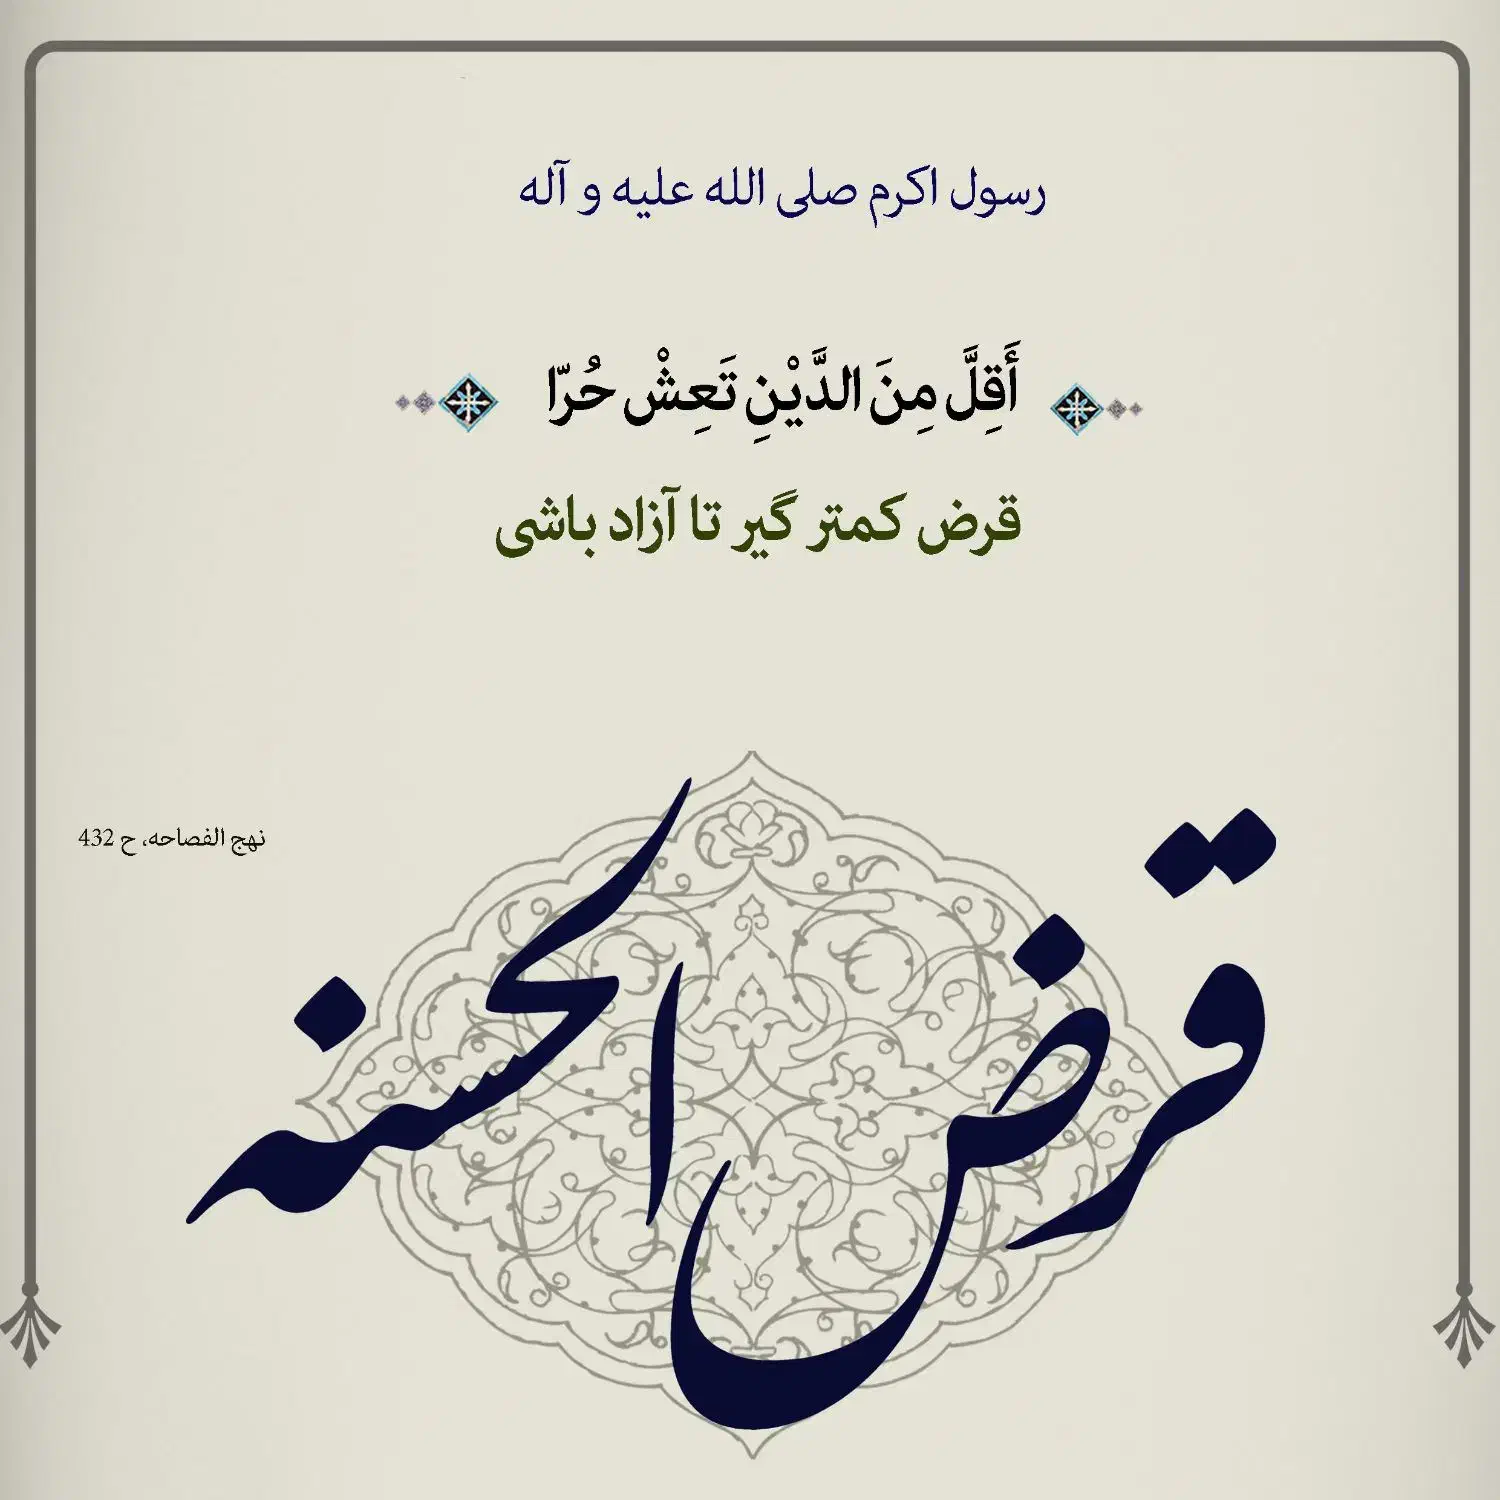 رسول اکرم صلی الله علیه و آله
أَقِلَّ مِنَ الدَّيْنِ تَعِشْ حُرّا
قرض کمتر گیر تا آزاد باشی
نهج الفصاحه، ح 432
قرض الحسنه